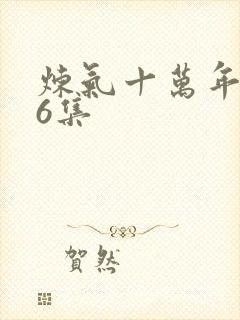 煉氣十萬年
6集
賀然